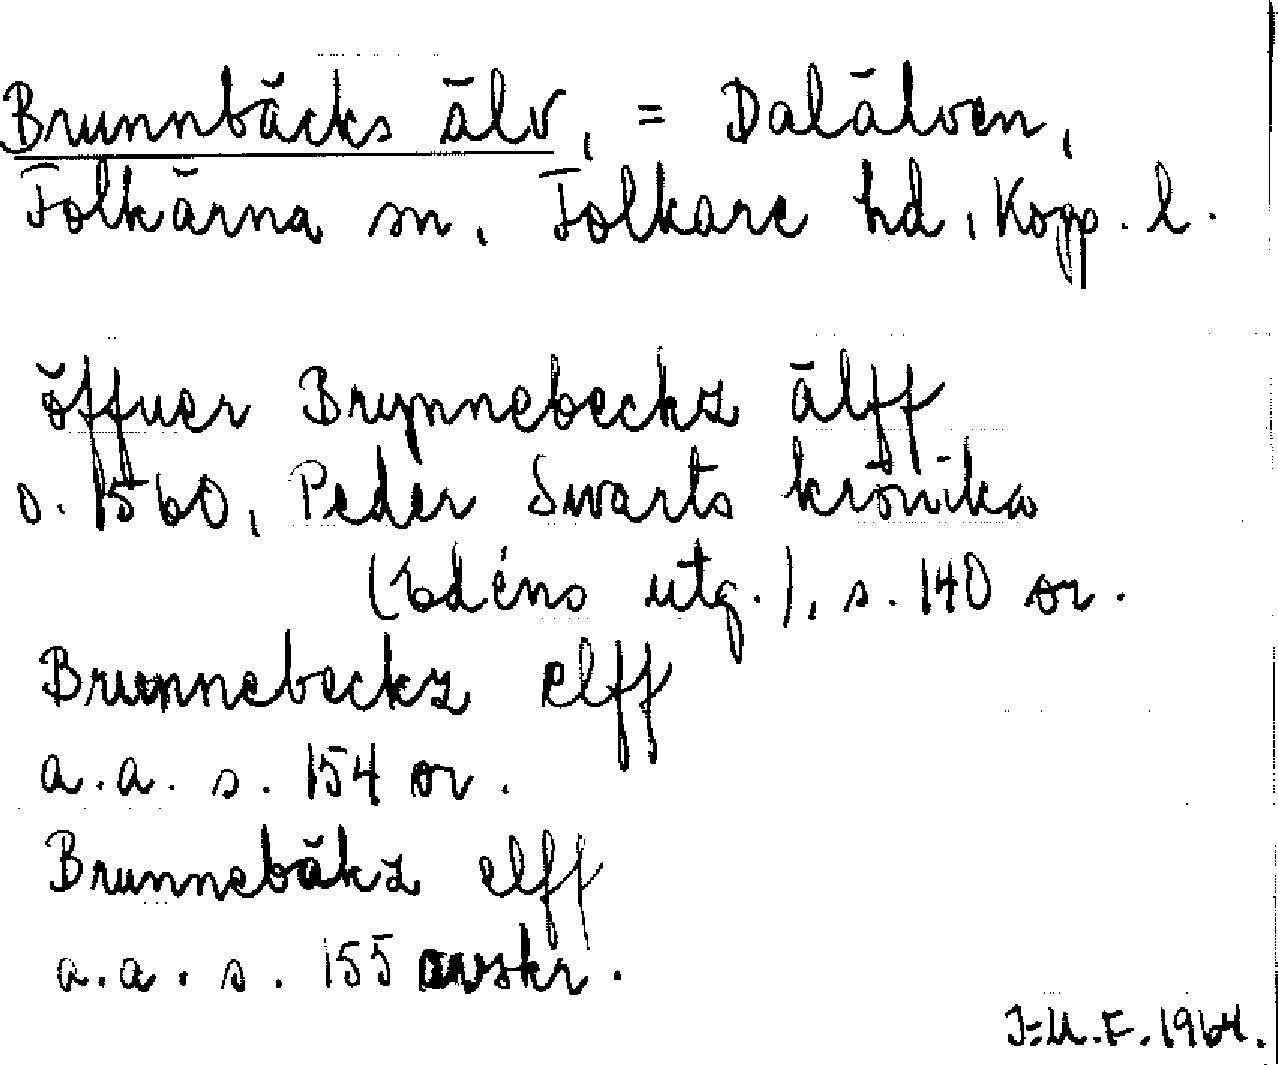 Brunnbäcks älv, = Dalälven,
Folkärna sn, Folkare hd, Kopp. l.
öffuer Brynnebeckz älff
o. 1560, Peder Swarts krönika
(Edéns utg.), s. 140 or.
Brunnebeckz elff
a.a. s. 154 or.
Brunnebäkz elff
a.a. s. 155 avskr.
J-U.F. 1964.